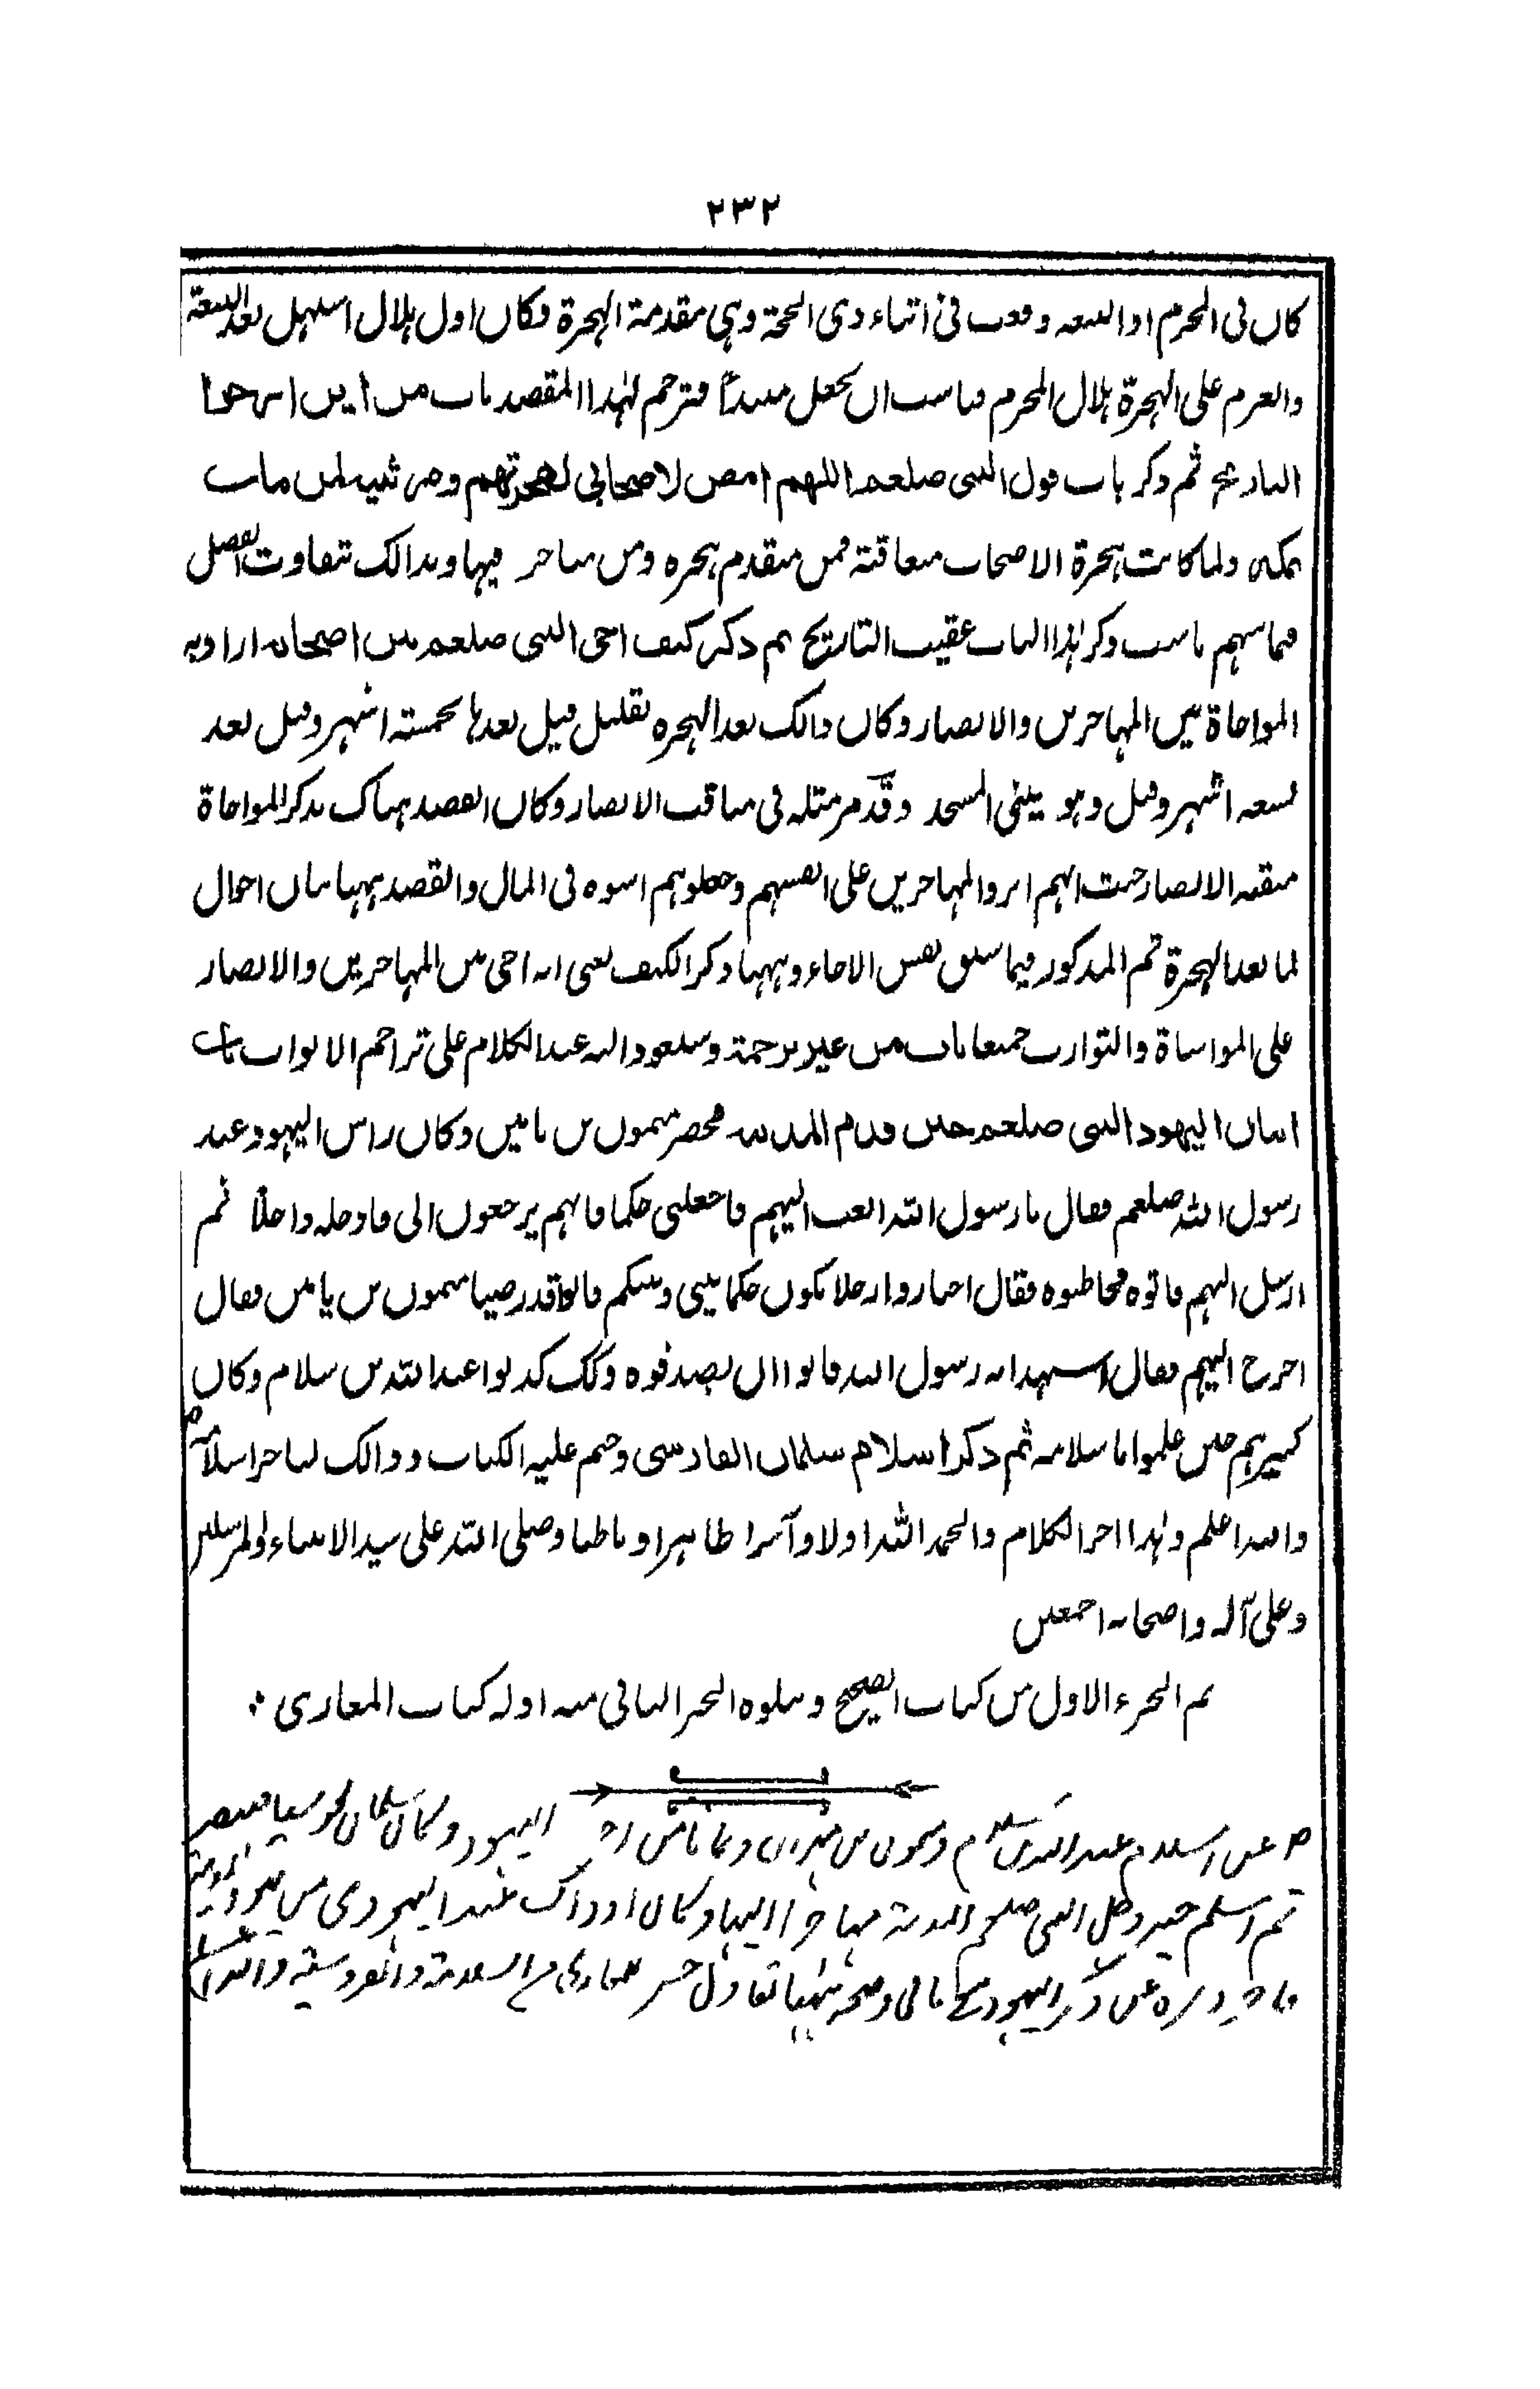 ٢٣٢
كان فى المحرم اذ البيعة وقعت فى اثناء ذى الحجة وهى مقدمة الهجرة وكان اول هلال استهل بعد البيعة
والعزم على الهجرة هلال المحرم فناسب ان يجعل مبتدأ فترجم لهذا المقصد باب من اين ارخوا
التاريخ ثم ذكر باب قول النبى صلعم اللهم امض لاصحابى لهجرتهم ومرثيته لمن مات
بمكة ولما كانت هجرة الاصحاب متعاقبة فمن متقدم هجره ومن متاخر فيها وبذالك تتفاوت الفضل
فيما بينهم ناسب ذكر هذا الباب عقيب التاريخ ثم ذكر كيف اخى النبى صلعم بين اصحابه اراد به
المواخاة بين المهاجرين والانصار وكان ذالك بعد الهجرة بقليل قيل بعدها بخمسة اشهر وقيل بعد
تسعة اشهر وقيل وهو يبنى المسجد وقد مر مثله فى مناقب الانصار وكان القصد هناك بذكر المواخاة
منقبة الانصار حيث انهم اثروا المهاجرين على انفسهم وجعلوهم اسوة فى المال والقصد ههنا بيان احوال
لما بعد الهجرة ثم المذكور فيما سبق نفس الاخاء وههنا ذكر الكيف يعنى انه اخى بين المهاجرين والانصار
على المواساة والتوارث جميعا باب من غير ترجمة وسنعود اليه عند الكلام على تراجم الابواب باب
اتيان اليهود النبى صلعم حين قدم المدينة فحضر ميمون بن يامين وكان راس اليهود عند
رسول الله صلعم فقال يا رسول الله ابعث اليهم فاجعلنى حكما فانهم يرجعون الى فادخله داخلا ثم
ارسل اليهم فاتوه فخاطبوه فقال اختاروا رجلا يكون حكما بينى وبينكم قالوا قد رضينا ميمون بن يامين فقال
اخرج اليهم فقال اشهد انه رسول الله فابوا ان يصدقوه وكك كذبوا عبد الله بن سلام وكان
كبيرهم حين علموا باسلامه ثم ذكر اسلام سلمان الفارسى وختم عليه الكتاب وذالك لتاخر اسلامه
والله اعلم وهذا اخر الكلام والحمد لله اولا وآخرا ظاهرا وباطنا وصلى الله على سيد الانبياء والمرسلين
وعلى آله واصحابه اجمعين
تم الجزء الاول من كتاب الصحيح ويتلوه الجزء الثانى منه اوله كتاب المغازى
عن اسلام عبد الله بن سلام وميمون بن اليهود وكان سلمان مجوسيا فتنصر
ثم اسلم حين دخل النبى صلعم المدينة مهاجرا اليها وكان اذ ذاك عند اليهودى من يهود المدينة
عن ذكر اليهود